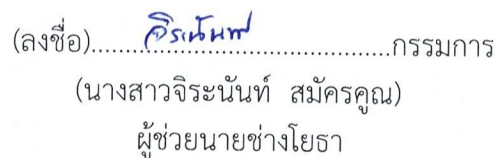 (ลงชื่อ)......จิระนันท์......กรรมการ
(นางสาวจิระนันท์ สมัครคูณ)
ผู้ช่วยนายช่างโยธา